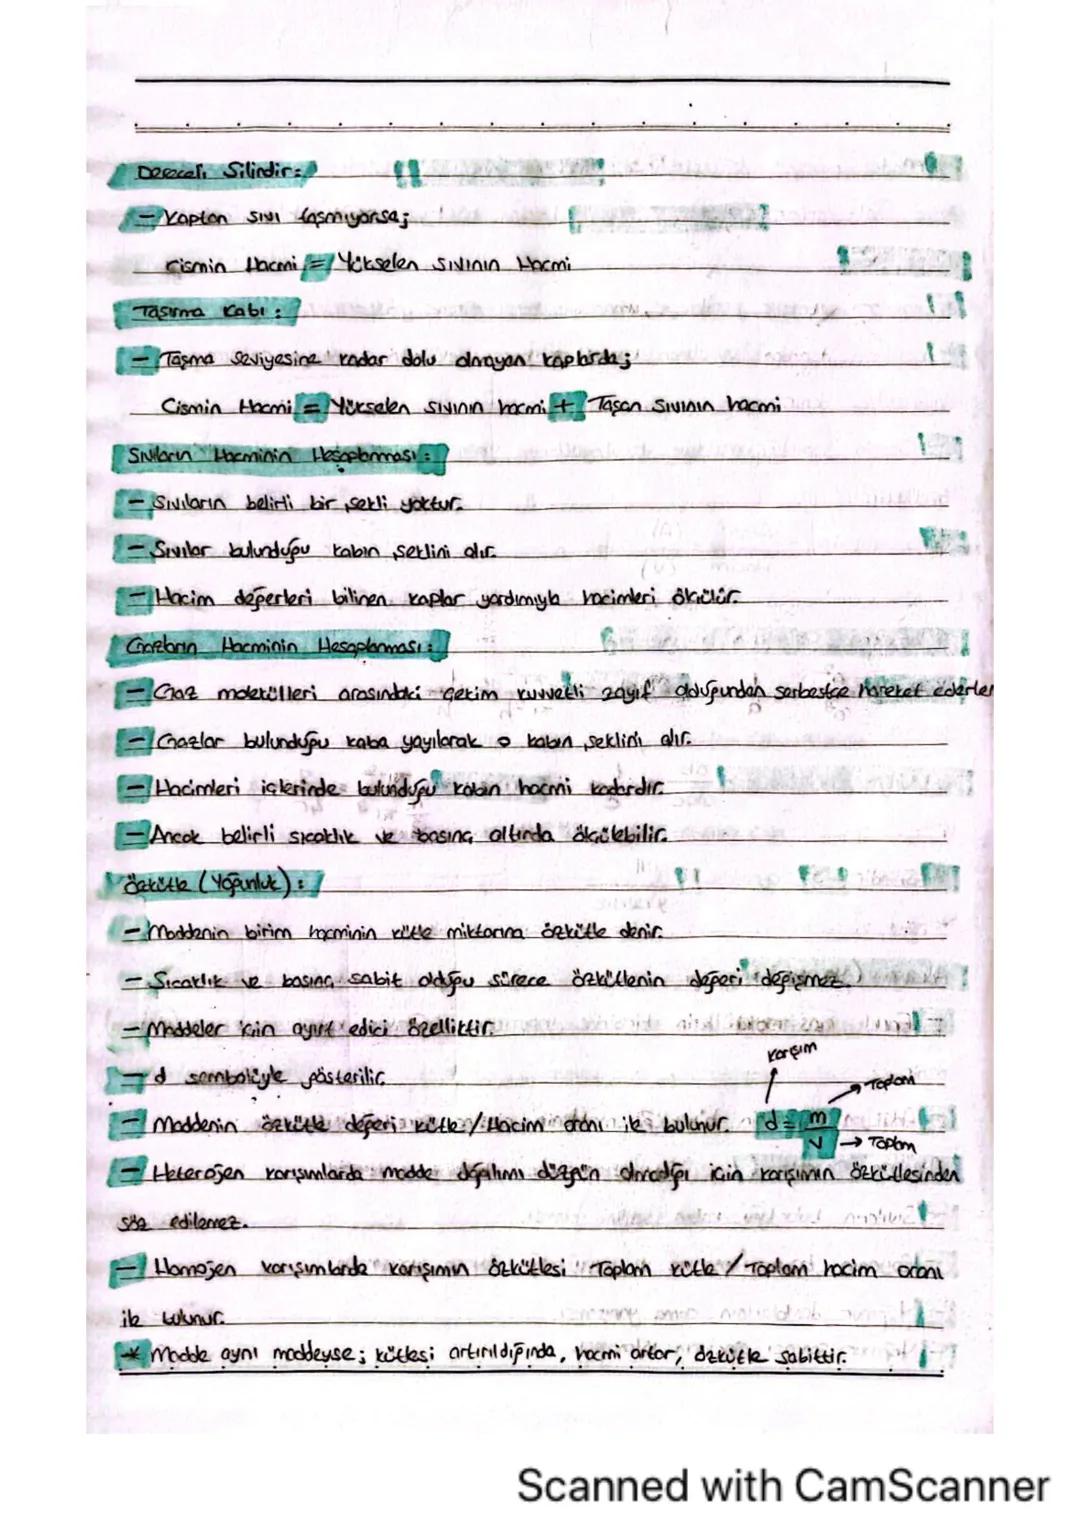 Dereceli Silindir:
- Kaptan sıvı taşmıyorsa;
Cismin Hacmi = Yükselen sıvının Hacmi
Taşırma Kabı:
- Taşma seviyesine kadar dolu olmayan kaplarda;
Cismin Hacmi = Yükselen sıvının hacmi + Taşan sıvının hacmi
Sıvıların Hacminin Hesaplanması:
- Sıvıların belirli bir şekli yoktur.
- Sıvılar bulunduğu kabın şeklini alır.
- Hacim değerleri bilinen kaplar yardımıyla hacimleri ölçülür.
Gazların Hacminin Hesaplanması:
- Gaz molekülleri arasındaki çekim kuvvetli zayıf olduğundan serbestçe hareket ederler
- Gazlar bulunduğu kaba yayılarak o kabın şeklini alır.
- Hacimleri içlerinde bulunduğu kabın hacmi kadardır.
- Ancak belirli sıcaklık ve basınç altında ölçülebilir.
Özkütle (Yoğunluk):
- Maddenin birim hacminin kütle miktarına özkütle denir.
- Sıcaklık ve basınç sabit olduğu sürece özkütlenin değeri değişmez.
- Maddeler için ayırt edici özelliktir.
karışım
- d sembolüyle gösterilir.
Toplam
- Maddenin özkütle değeri kütle/Hacim oranı ile bulunur. d = m
V → Toplam
- Heterojen karışımlarda madde dağılımı düzgün olmadığı için karışımın özkütlesinden
söz edilemez.
- Homojen karışımlarda karışımın özkütlesi Toplam kütle / Toplam hacim oranı
ile bulunur.
* Madde aynı maddeyse; kütlesi artırıldığında, hacmi artar, özkütle sabittir.
Scanned with CamScanner